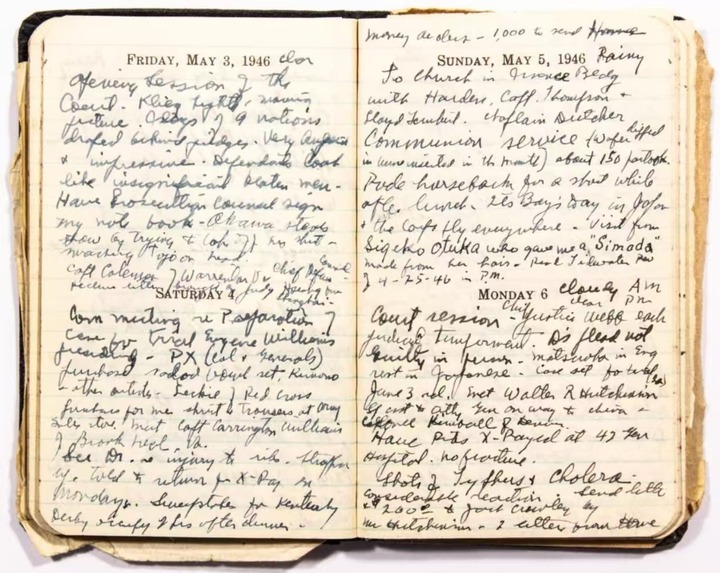 FRIDAY, MAY 3, 1946 clor
Opening Session of the
Court. Klieg lights, moving
picture. flags of 9 nations
draped behind judges. Very august
& impressive. Defendants look
like insignificant beaten men -
Have Prosecution Counsel sign
my note book - Okawa steals
show by trying to take off his shirt -
smacking Tojo on head.
Capt Coleman of Warrenton Va Chief Defense Counsel
SATURDAY 4
Com meeting re Preparation of
case for trial Eugene Williams
presiding - PX (Col & Generals)
purchase salad bowl set, Kimono
& other articles - Leckie of Red Cross
purchase for me shirt & trousers at army
sales store. Met Capt Carrington Williams
of Brook Neal, Va.
See Dr. re injury to rib. Strapped
up. Told to return for X-Ray on
Monday. Sweepstakes for Kentucky
Derby after dinner -
money orders - 1,000 to send Home
SUNDAY, MAY 5, 1946 Rainy
To Church in Finance Bldg
with Harden, Capt. Thompson &
Lloyd Chaplain Dietcher
Communion service (wafer dipped
in wine in the mouth) about 150 partook.
Rode horseback for a short while
after lunch. It's Boy's Day in Japan
& the carp fly everywhere - Visit from
Sigeko Otuka who gave me a "Simada"
made from her hair - Read Tidewater Rev
of 4-25-46 in P.M.
MONDAY 6 cloudy AM
clear P.M.
Court session - Chief Justice Webb each
Ds plead not
guilty in person - Matsuoka in Eng
rest in Japanese - Case set for trial
June 3rd. Met Walter R Hutchinson
Asst Atty Gen on way to China -
Have Ribs X-Rayed at 42 Gen
Hospital. no fracture.
Shots of Typhus & Cholera -
considerable reaction - Send
$200 by
Mr Hutchinson - 2 letters from Home